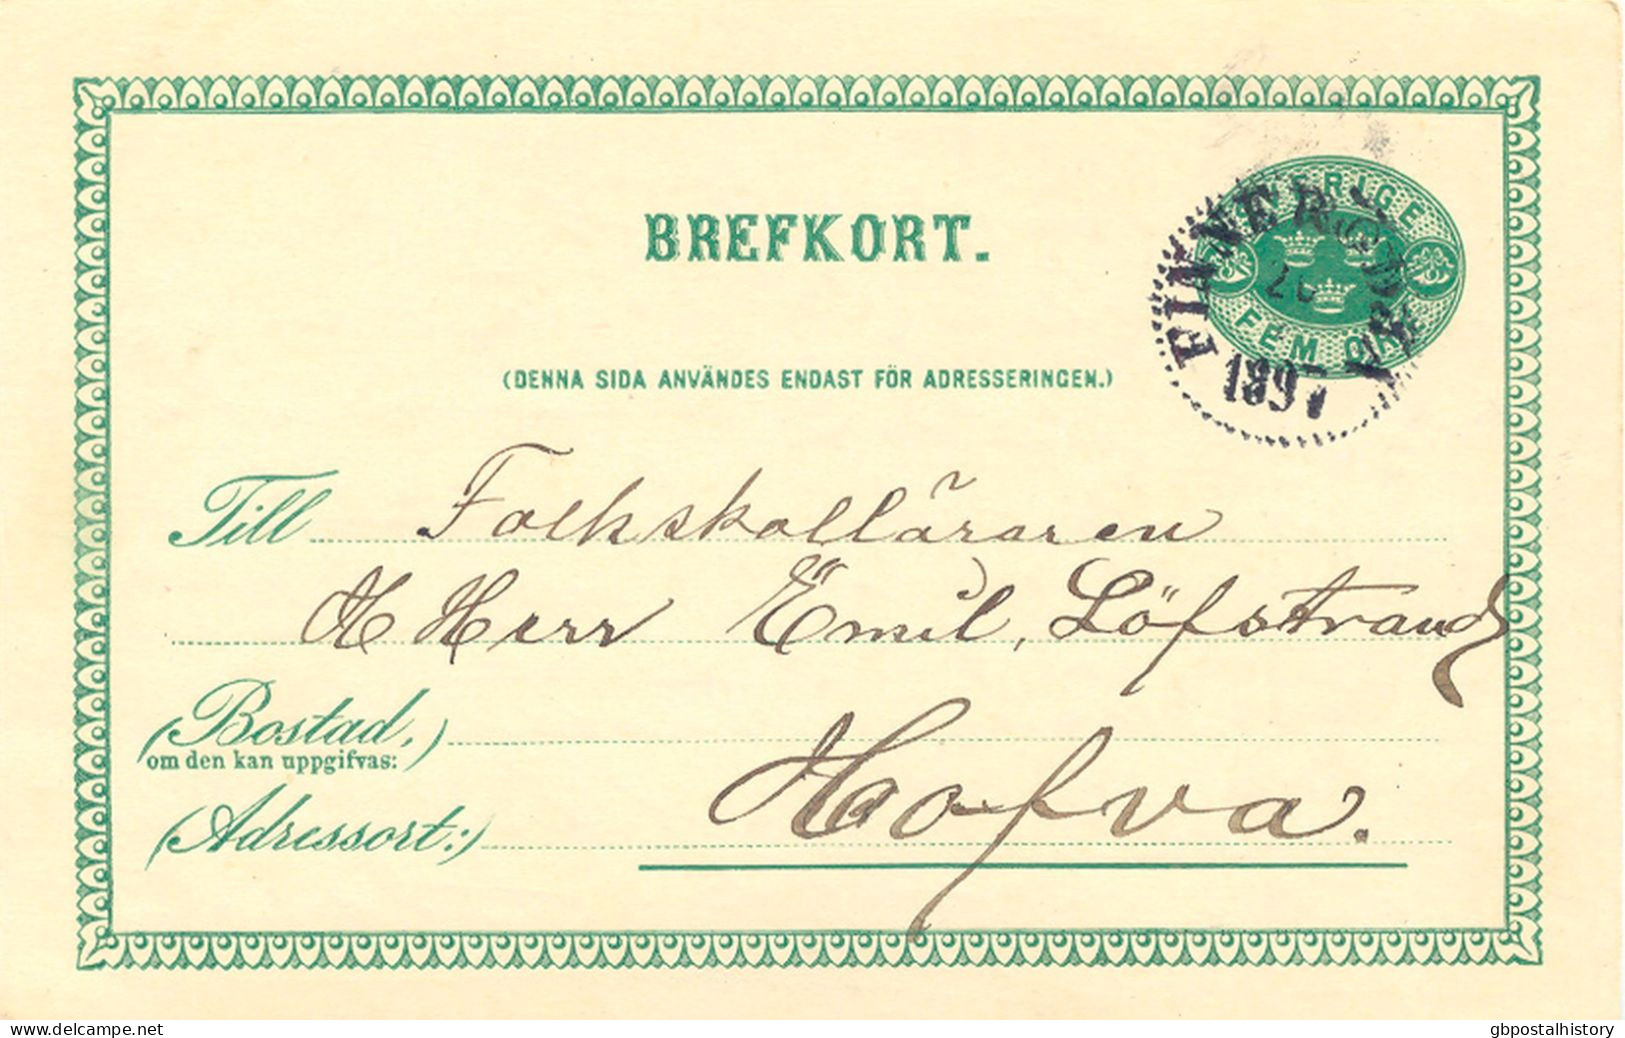 SVERIGE
FEM ÖRE
FINNERÖDJA
26
1897
BREFKORT.
(DENNA SIDA ANVÄNDES ENDAST FÖR ADRESSERINGEN.)
Till Folkskolläraren
H Herr Emil, Löfstrand
(Bostad,)
om den kan uppgifvas:
Hofva.
(Adressort:)
www.delcampe.net
gbpostalhistory